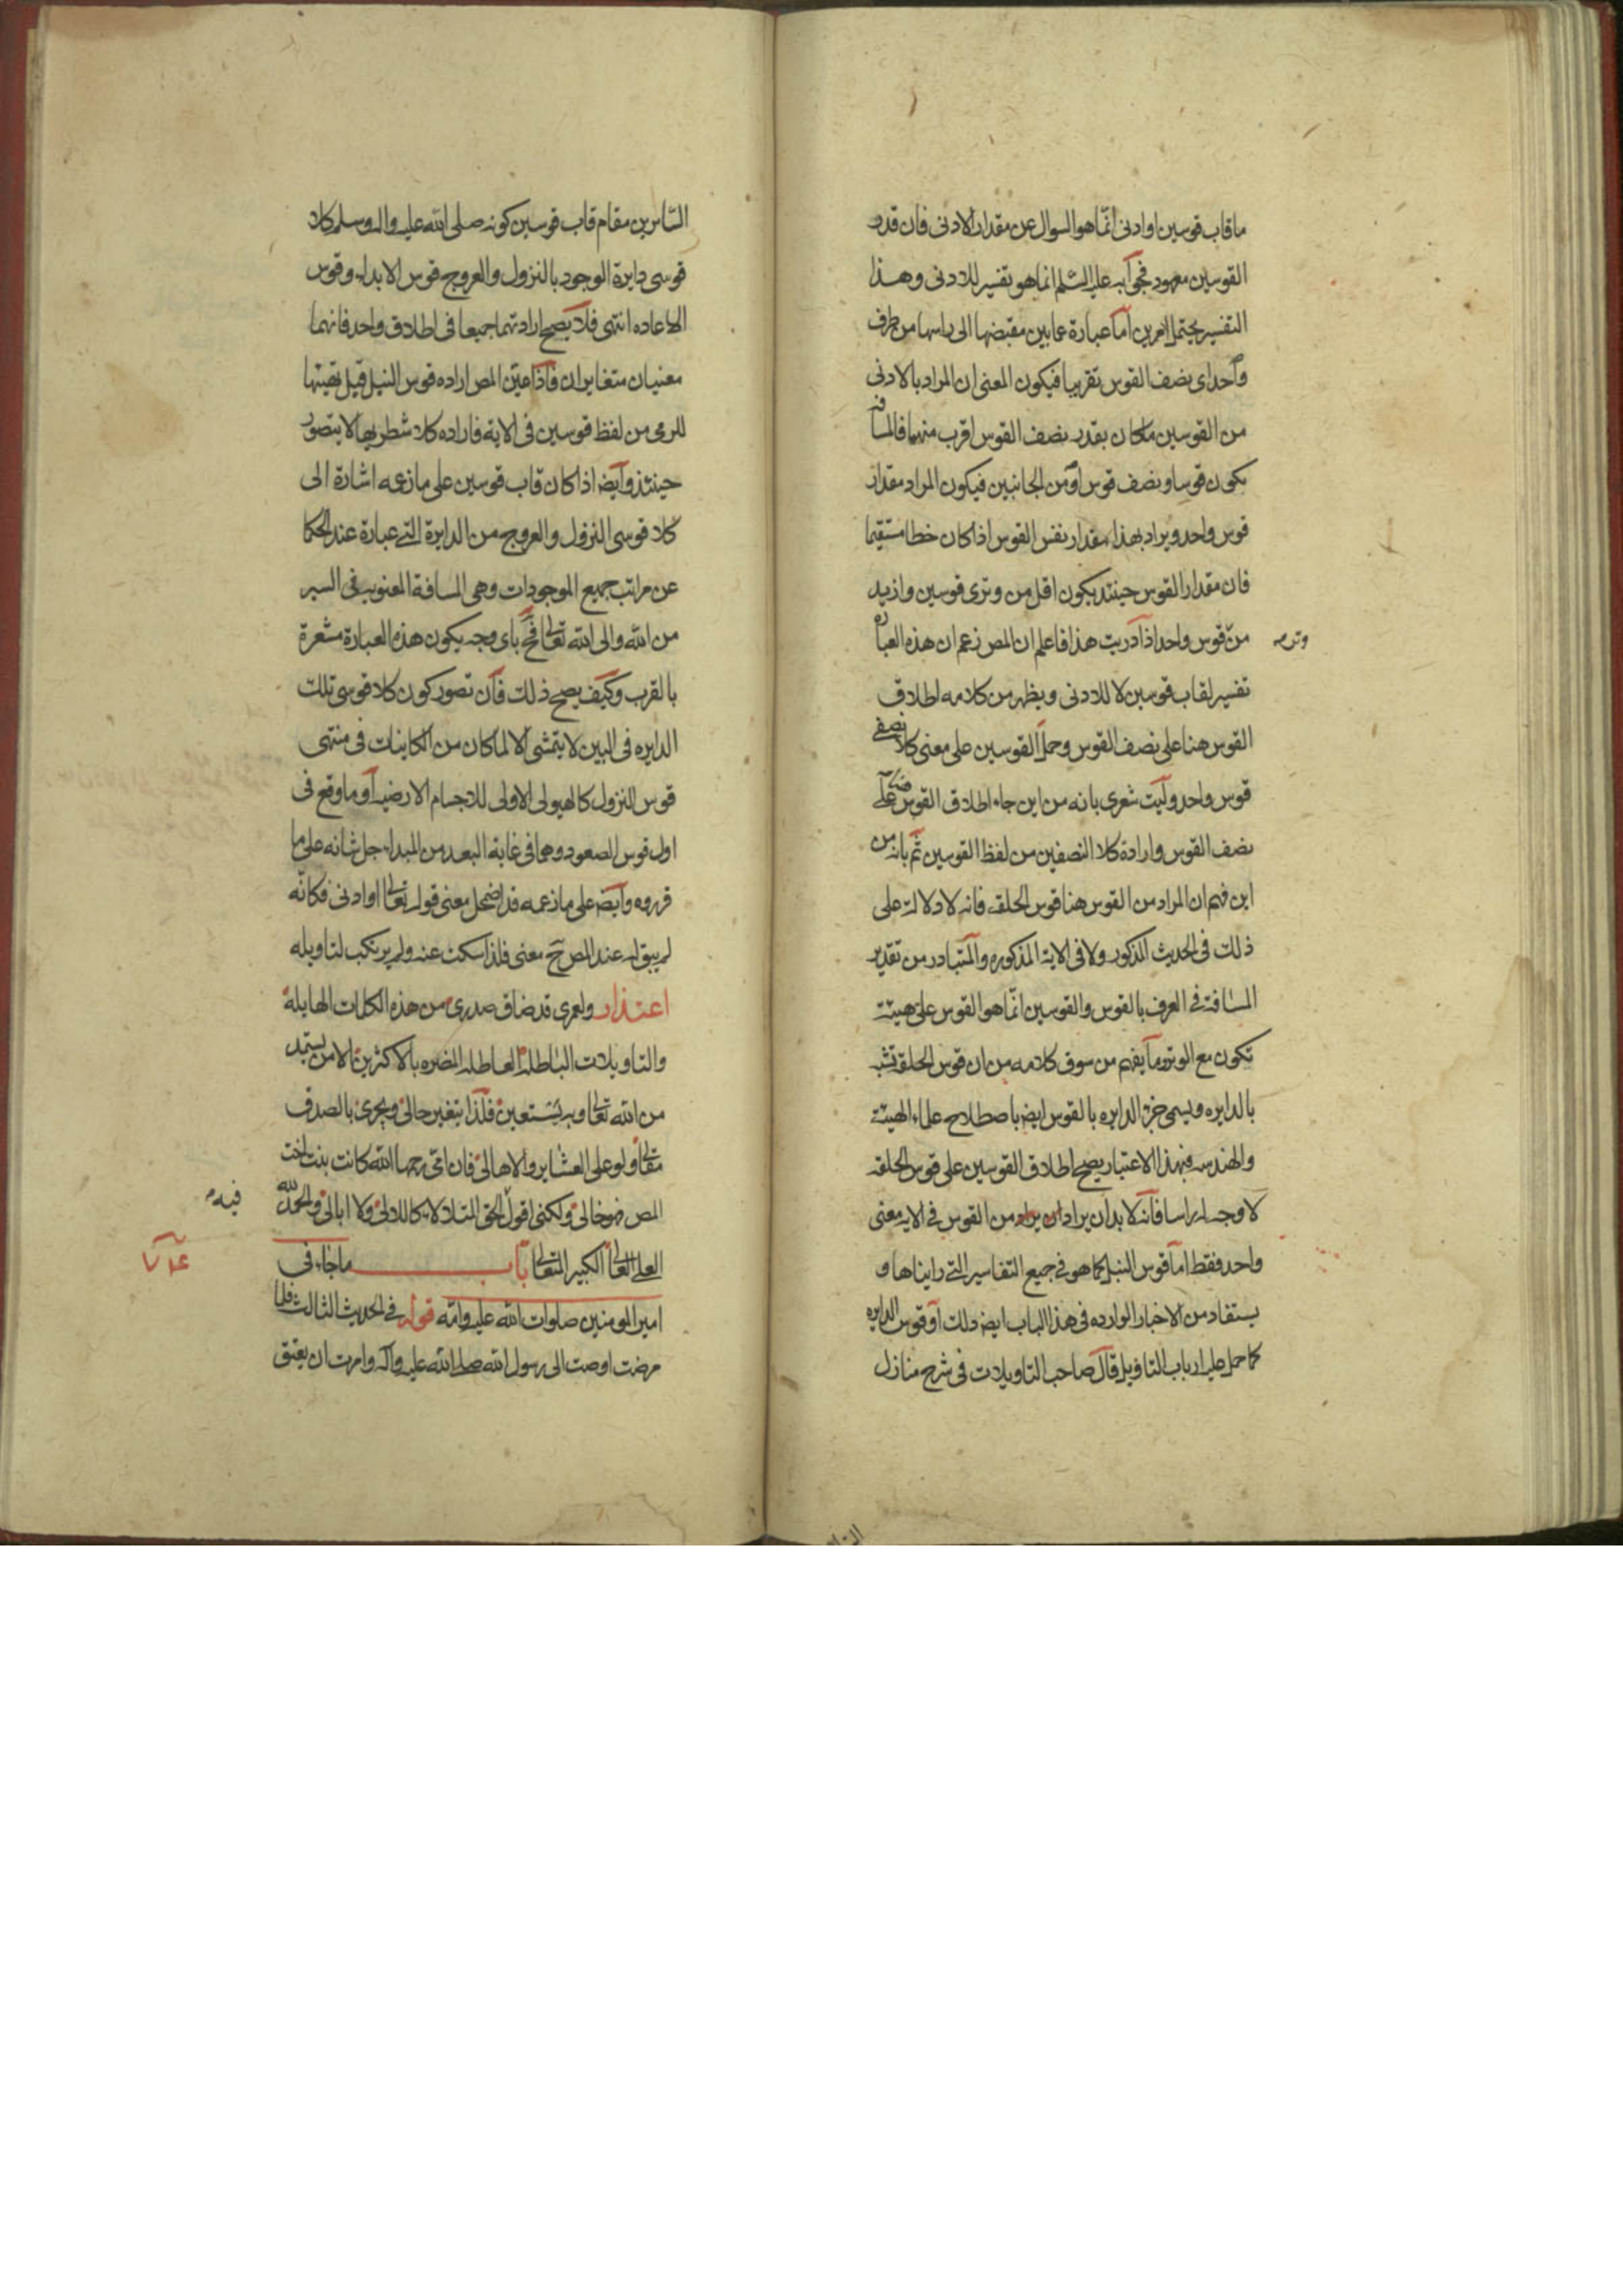 ما قاب قوسين او ادنى انّما هو السوال عن مقدار الادنى فان قدر
القوسين معهود فجوابه عليه السّلم انما هو تفسير للادنى وهذا
التفسير يحتمل امرين اما عبارة عما بين مقبضها الى راسها من طرف
واحد اى نصف القوس تقريبا فيكون المعنى ان المراد بالادنى
من القوسين ما كان بقدر نصف القوس اقرب منهما فالمسافه
يكون قوسا ونصف قوس او من الجانبين فيكون المراد مقدار
قوس واحد ويراد بهذا مقدار نفس القوس اذا كان خطا مستقيما
فان مقدار القوس حينئذ يكون اقل من وترى قوسين وازيد
من قوس واحد اذا دريت هذا فاعلم ان المص زعم ان هذه العباره
وتر مه
تفسير لقاب قوسين لا للادنى ويظهر من كلامه اطلاق
القوس هنا على نصف القوس وحمل القوسين على معنى كلا نصفى
قوس واحد وليت شعرى بانه من اين جاء اطلاق القوس على
نصف القوس وارادة كلا النصفين من لفظ القوسين ثم بانه من
اين فهم ان المراد من القوس هنا قوس الحلقه فانه لا دلالة على
ذلك فى الحديث المذكور ولا فى الاية المذكوره والمتبادر من تقدير
المسافة فى العرف بالقوس والقوسين انّما هو القوس على هيئة
تكون مع الوتر وما يفهم من سوق كلامه من ان قوس الحلقة تشبه
بالدايره ويسمى جزء الدايره بالقوس ايضا باصطلاح علماء الهيئة
والهندسه فبهذا الاعتبار يصح اطلاق القوسين على قوس الحلقه
لا وجه له راسا فانه لا بد ان يراد من القوس فى الايه معنى
واحد فقط اما قوس النبل كما هو فى جميع التفاسير التى رايناها و
يستفاد من الاخبار الوارده فى هذا الباب ايضا ذلك او قوس الدايره
كما حمل عليه ارباب التاويل قال صاحب التاويلات فى شرح منازل
السّايرين مقام قاب قوسين كونه صلى الله عليه واله وسلم كلا
قوسى دايرة الوجود بالنزول والعروج قوس الابداء وقوس
الاعاده انتهى فلا يصح ارادتهما جميعا فى اطلاق واحد فانهما
معنيان متغايران فاذا عيّن المص اراده قوس النبل قبل تهيئها
للرمى من لفظ قوسين فى الاية فاراده كلا شطريها لا يتصور
حينئذ وايضا اذا كان قاب قوسين على ما زعمه اشارة الى
كلا قوسى النزول والعروج من الدايرة التى عبارة عند الحكما
عن مراتب جميع الموجودات وهى المسافة المعنويه فى السير
من الله والى الله تعالى فح باى وجه يكون هذه العبارة مشعرة
بالقرب وكيف يصح ذلك فان تصور كون كلا قوسى تلك
الدايره فى البين لا يتمشى الا لما كان من الكاينات فى منتهى
قوس النزول كالهيولى الاولى للاجسام الارضيه او ما وقع فى
اول قوس الصعود وهما فى غاية البعد من المبداء جل شانه على ما
قرروه وايضا على ما زعمه قد اضحل معنى قوله تعالى او ادنى فكانّه
لم يبق له عند المص ح معنى فلذا سكت عنه ولم يرتكب لتاويله
اعتذار ولعمرى قد ضاق صدرى من هذه الكلمات الهايلة
والتاويلات الباطله العاطله المضره بالاكثرين الا من يستمد
من الله تعالى وبه يستعين فلذا يتغير حالى ويجرى بالصدق
مقالى ولو على العشاير والاهالى فان امّى رحمها الله كانت بنت اخت
المص فهو خالى ولكنى اقول الحق المتلالا كاللالى ولا ابالى والحمد لله
فيه مه
العلى العالى الكبير المتعالى باب ما جاء فى
امير المومنين صلوات الله عليه وامّه قوله فى الحديث الثالث فلما
مرضت اوصت الى رسول الله صلى الله عليه واله وامرت ان يعتق